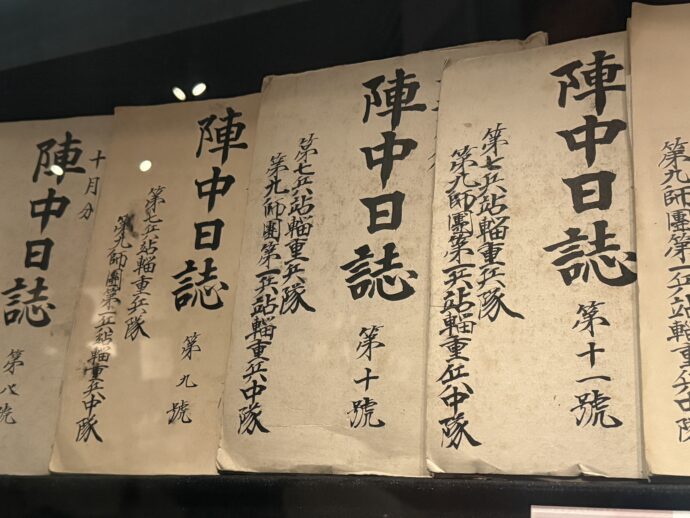 第九師團第一兵站輜重兵中隊
陣中日誌 第十一號
第七兵站輜重兵隊
第九師團第一兵站輜重兵中隊
陣中日誌 第十號
第七兵站輜重兵隊
第九師團第一兵站輜重兵中隊
陣中日誌 第九號
第七兵站輜重兵隊
第九師團第一兵站輜重兵中隊
十月分
陣中日誌 第八號